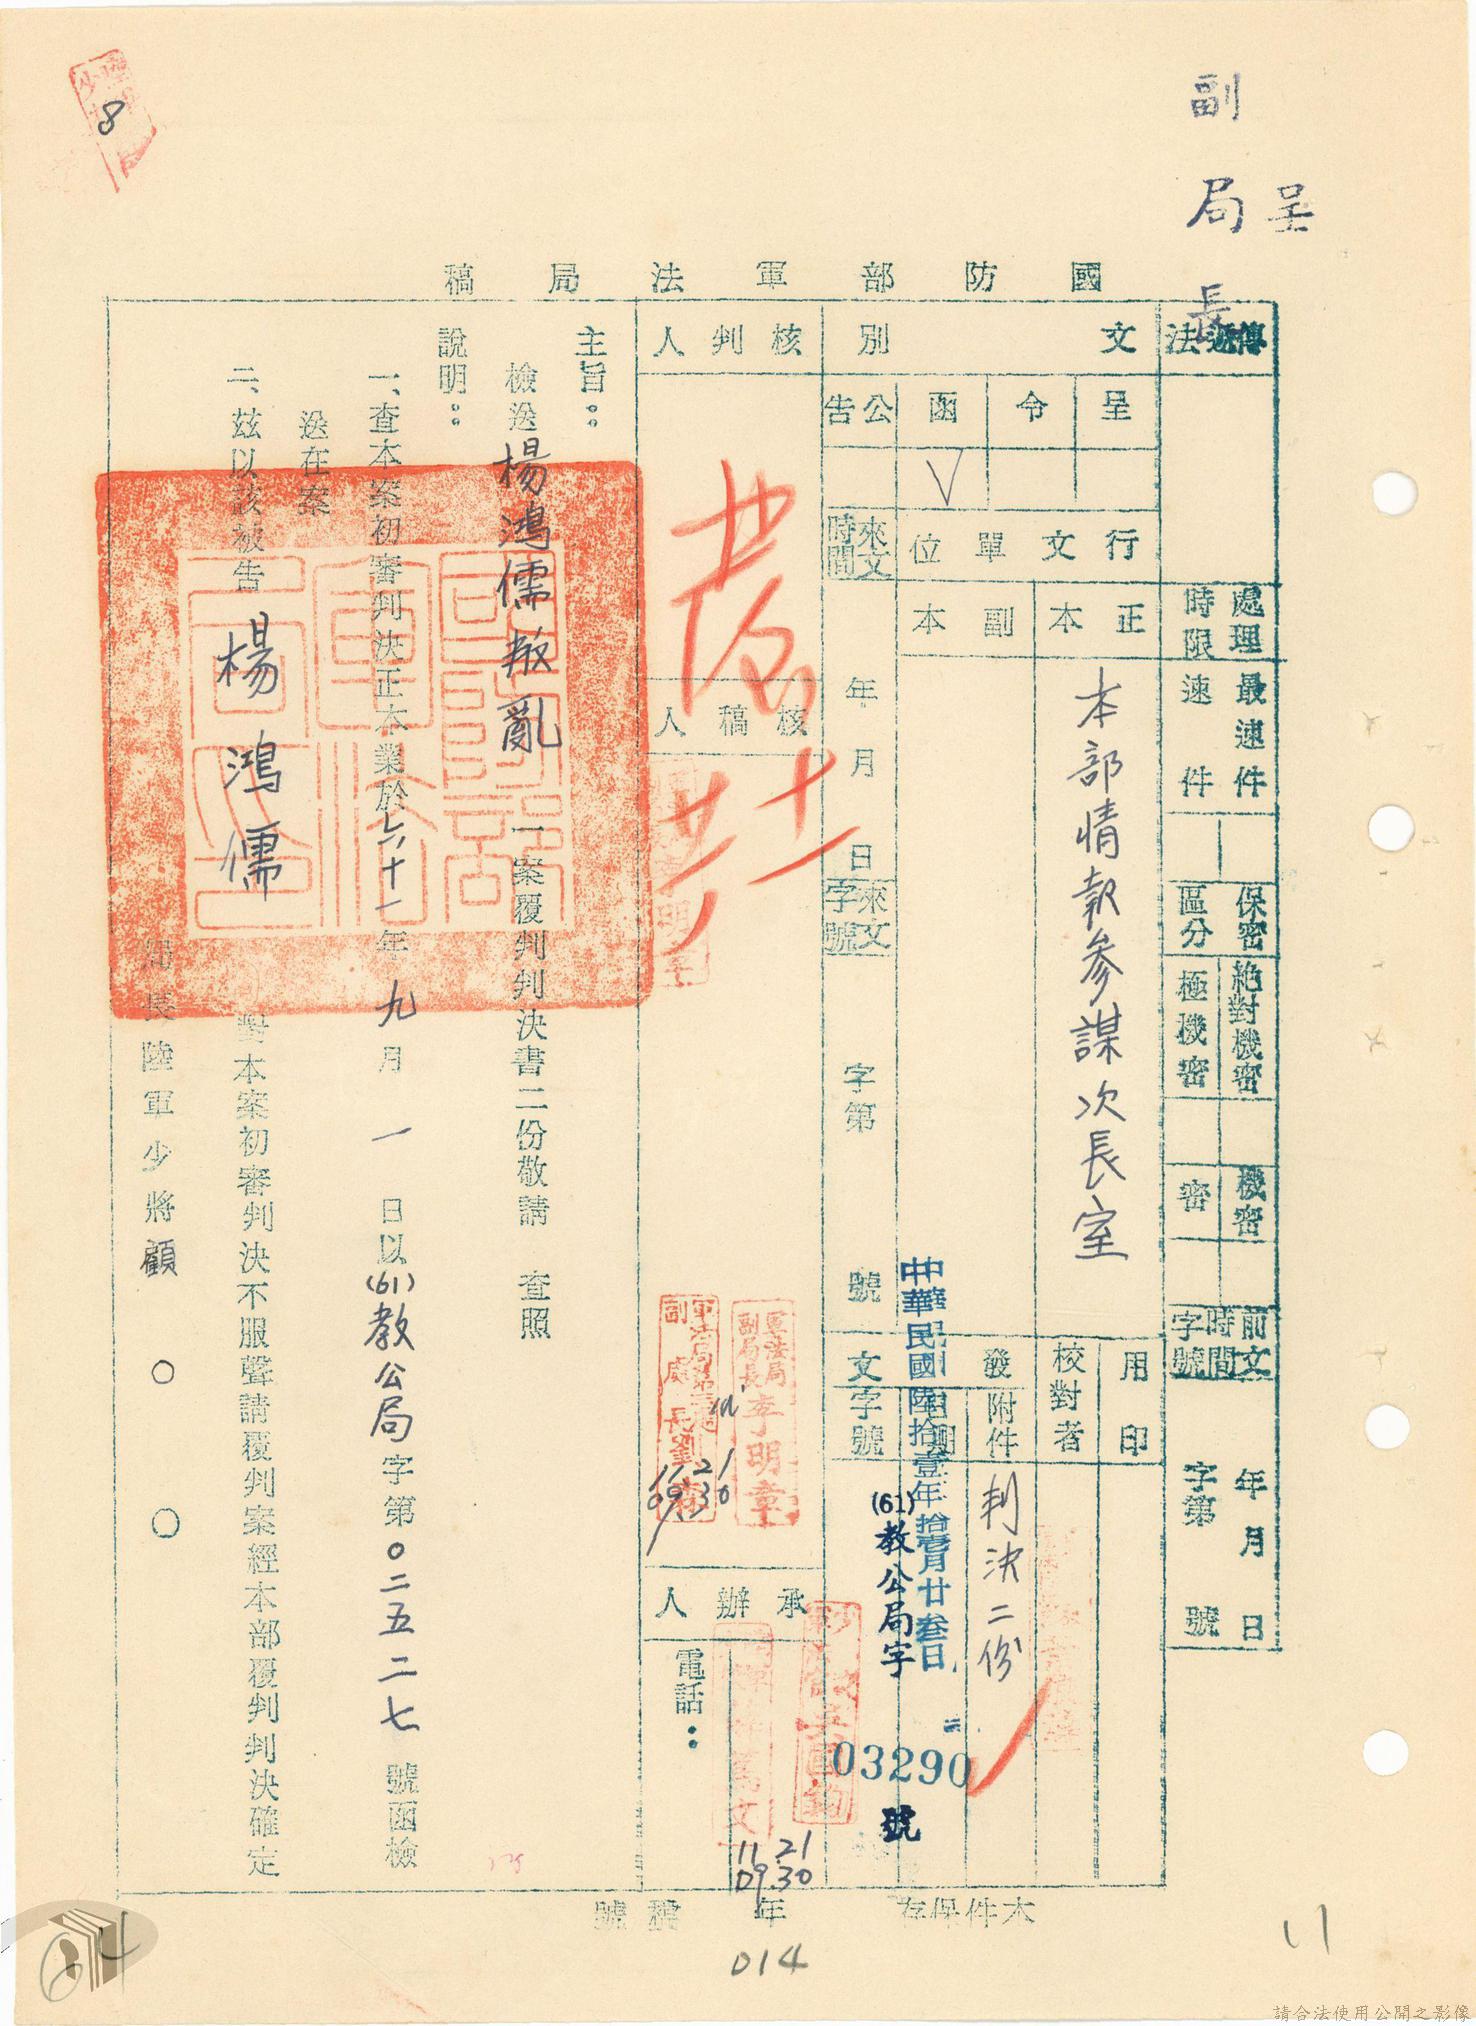 副局長
呈
國防部軍法局稿
傳遞法
處理時限
最速件
速件
保密區分
絕對機密
極機密
機密
密
前文時間字號
年月日
字第號
文別
呈
令
函
公告
V
行文單位
正本
副本
本部情報參謀次長室
來文時間
年月日
來文字號
字第號
用印
校對者
發文
附件
判決二份
字號
中華民國陸拾壹年拾壹月廿叁日
(61)教公局字
03290
號
核判人
核稿人
十一
軍法局副局長李明章
11 21
09.30
承辦人
電話：
11 21
09.30
主旨：
檢送楊鴻儒叛亂一案覆判判決書二份敬請 查照
說明：
一、查本案初審判決正本業於六十一年九月一日以(61)教公局字第０二五二七號函檢
送在案
二、茲以該被告楊鴻儒對本案初審判決不服聲請覆判案經本部覆判判決確定
局長陸軍少將顧○○
本件保存年
號
8
014
11
64
請合法使用公開之影像